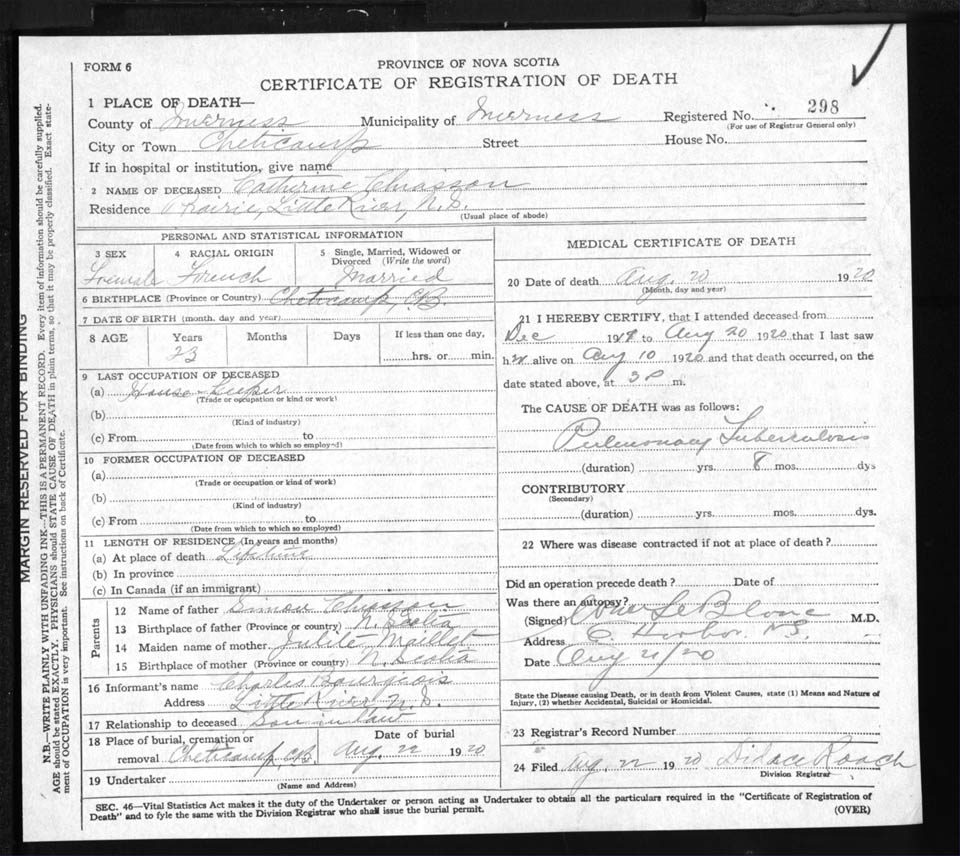 FORM 6
PROVINCE OF NOVA SCOTIA
CERTIFICATE OF REGISTRATION OF DEATH
1 PLACE OF DEATH—
County of Inverness Municipality of Inverness Registered No. 298
(For use of Registrar General only)
City or Town Cheticamp Street House No.
If in hospital or institution, give name
2 NAME OF DECEASED Catherine Chiasson
Residence Prairie, Little River, N.S.
(Usual place of abode)
PERSONAL AND STATISTICAL INFORMATION
3 SEX 4 RACIAL ORIGIN 5 Single, Married, Widowed or Divorced (Write the word)
Female French Married
6 BIRTHPLACE (Province or Country) Cheticamp, C.B.
7 DATE OF BIRTH (month, day and year)
8 AGE Years Months Days If less than one day,
23 hrs. or min.
9 LAST OCCUPATION OF DECEASED
(a) House-keeper
(Trade or occupation or kind or work)
(b)
(Kind of industry)
(c) From to
(Date from which to which so employed)
10 FORMER OCCUPATION OF DECEASED
(a)
(Trade or occupation or kind of work)
(b)
(Kind of industry)
(c) From to
(Date from which to which so employed)
11 LENGTH OF RESIDENCE (In years and months)
(a) At place of death Lifetime
(b) In province
(c) In Canada (if an immigrant)
Parents
12 Name of father Simon Chiasson
13 Birthplace of father (Province or country) N. Scotia
14 Maiden name of mother Julite Maillet
15 Birthplace of mother (Province or country) N. Scotia
16 Informant's name Charles Bourgeois
Address Little River N.S.
17 Relationship to deceased Son in law
18 Place of burial, cremation or removal Cheticamp, C.B. Date of burial Aug. 22 1920
19 Undertaker
(Name and Address)
MEDICAL CERTIFICATE OF DEATH
20 Date of death Aug. 20 1920
(Month, day and year)
21 I HEREBY CERTIFY, that I attended deceased from
Dec 1918 to Aug 20 1920 that I last saw
her alive on Aug 10 1920 and that death occurred, on the
date stated above, at 3 P m.
The CAUSE OF DEATH was as follows:
Pulmonary Tuberculosis
(duration) yrs. 8 mos. dys
CONTRIBUTORY
(Secondary)
(duration) yrs. mos. dys.
22 Where was disease contracted if not at place of death?
Did an operation precede death? Date of
Was there an autopsy?
(Signed) LeBlanc M.D.
Address E. Harbor. N.S.
Date Aug 21/20
State the Disease causing Death, or in death from Violent Causes, state (1) Means and Nature of
Injury, (2) whether Accidental, Suicidal or Homicidal.
23 Registrar's Record Number
24 Filed Aug. 22 1920 Didace Roach
Division Registrar
SEC. 46—Vital Statistics Act makes it the duty of the Undertaker or person acting as Undertaker to obtain all the particulars required in the "Certificate of Registration of
Death" and to fyle the same with the Division Registrar who shall issue the burial permit.
(OVER)
MARGIN RESERVED FOR BINDING
N.B.—WRITE PLAINLY WITH UNFADING INK—THIS IS A PERMANENT RECORD. Every item of information should be carefully supplied.
AGE should be stated EXACTLY. PHYSICIANS should STATE CAUSE OF DEATH in plain terms, so that it may be properly classified. Exact state-
ment of OCCUPATION is very important. See instructions on back of Certificate.